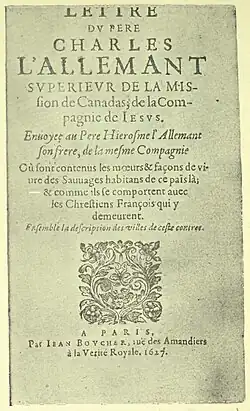 LETTRE
DV PERE
CHARLES
L'ALLEMANT
SVPERIEVR DE LA MIS-
sion de Canadas, de la Com-
pagnie de IESVS.
Enuoyee au Pere Hierosme l'Allemant
son frere, de la mesme Compagnie
Où sont contenus les mœurs & façons de vi-
ure des Sauuages habitans de ce païs là;
& comme ils se comportent auec
les Chrestiens François qui y
demeurent.
Ensemble la description des villes de ceste contree.
A PARIS,
Par IEAN BOVCHER, ruë des Amandiers
à la Verité Royale. 1627.